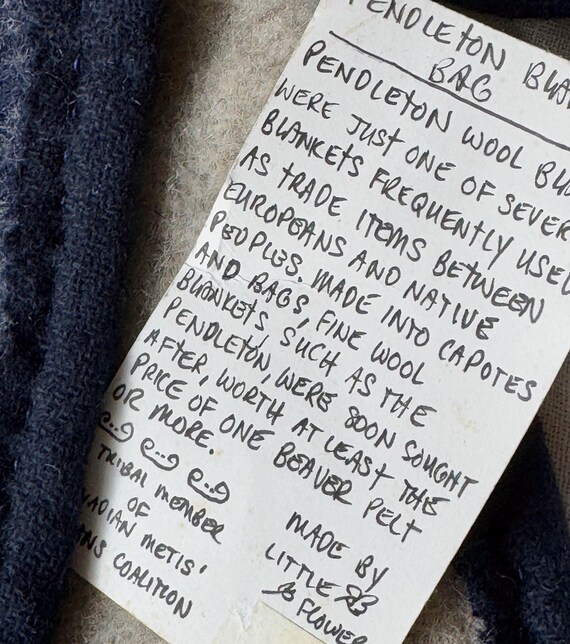 PENDLETON BLA
BAG
PENDLETON WOOL BL
WERE JUST ONE OF SEVER
BLANKETS FREQUENTLY USED
AS TRADE ITEMS BETWEEN
EUROPEANS AND NATIVE
PEOPLES. MADE INTO CAPOTES
AND BAGS, FINE WOOL
BLANKETS, SUCH AS THE
PENDLETON, WERE SOON SOUGHT
AFTER, WORTH AT LEAST THE
PRICE OF ONE BEAVER PELT
OR MORE.
TRIBAL MEMBER
OF
ADIAN METIS'
NS COALITION
MADE BY
LITTLE
FLOWER